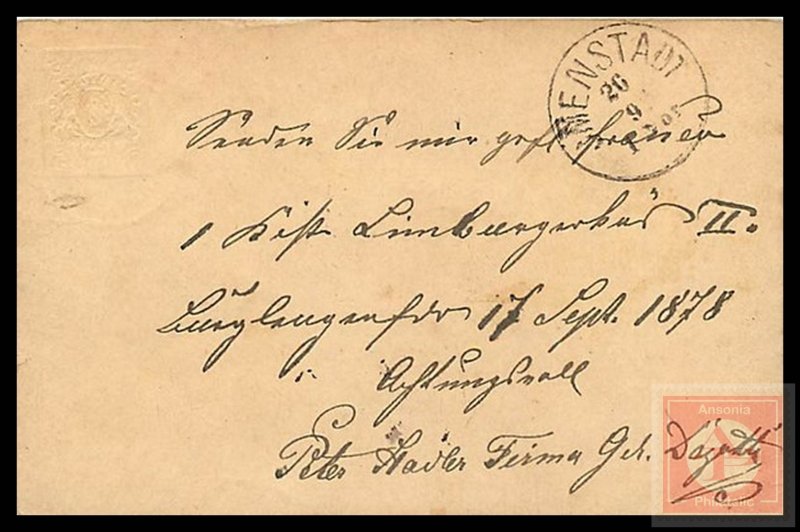 MENSTADT
26
9
Senden Sie mir gefl. franco
1 Kist Limburgerkäs II.
Burglengenfdr 17 Sept. 1878
Achtungsvoll
Peter Hadler Firma Geb.
Ansonia
Philatelic